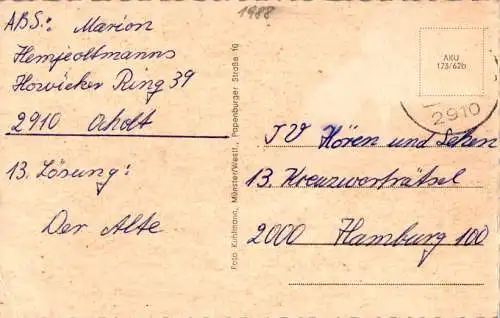 1988
ABS.: Marion
Hemjeoltmanns
Howieker Ring 39
2910 Ocholt
13. Lösung:
Der Alte
Foto Kuhlmann, Münster/Westf., Papenburger Straße 10
AKU
173/62b
2910
TV Hören und Sehen
13. Kreuzworträtsel
2000 Hamburg 100